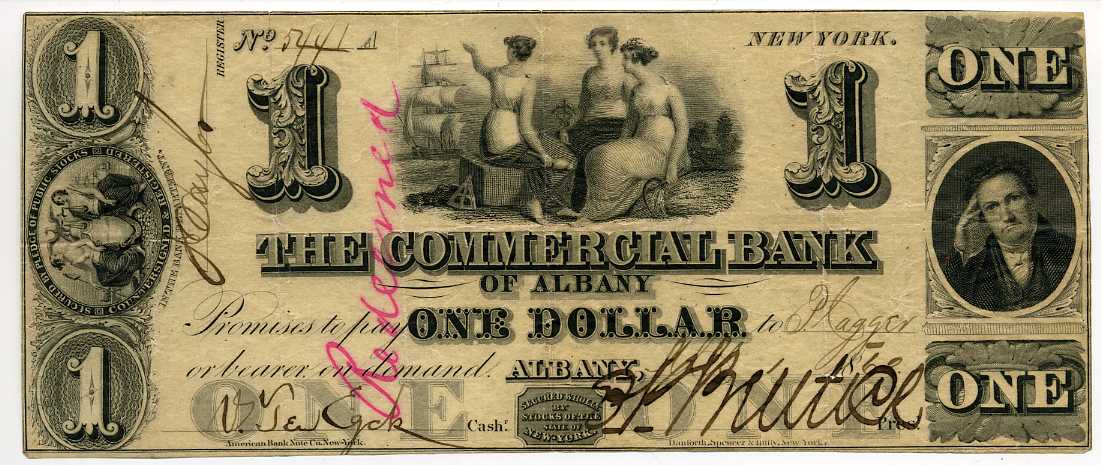 1
REGISTER
No 5441 A
NEW YORK.
ONE
1
1
Redeemed
SECURED BY PLEDGE OF PUBLIC STOCKS
COUNTERSIGNED & REGISTERED
THE COMMERCIAL BANK
OF ALBANY
Promises to pay ONE DOLLAR to
or bearer on demand. ALBANY,
1
ONE
ONE
V. Ten Eyck Cashr.
SECURED WHOLLY
BY
STOCKS OF THE
STATE OF
NEW-YORK.
Prest.
American Bank Note Co. New-York.
Danforth, Spencer & Hufty, New York.